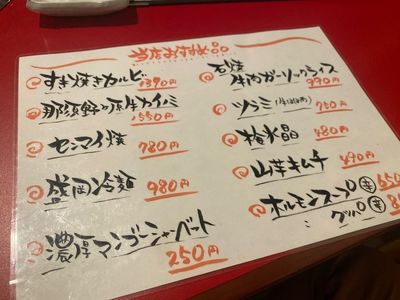 当店おすすめ品
すき焼きカルビ 1390円
那須野ヶ原牛カイノミ 1550円
センマイ焼 780円
盛岡冷麺 980円
濃厚マンゴーシャーベット 250円
石焼
牛肉ガーリックライス 990円
ツラミ 750円
桧水晶 480円
山芋キムチ 490円
ホルモンスープ
650
クッパ